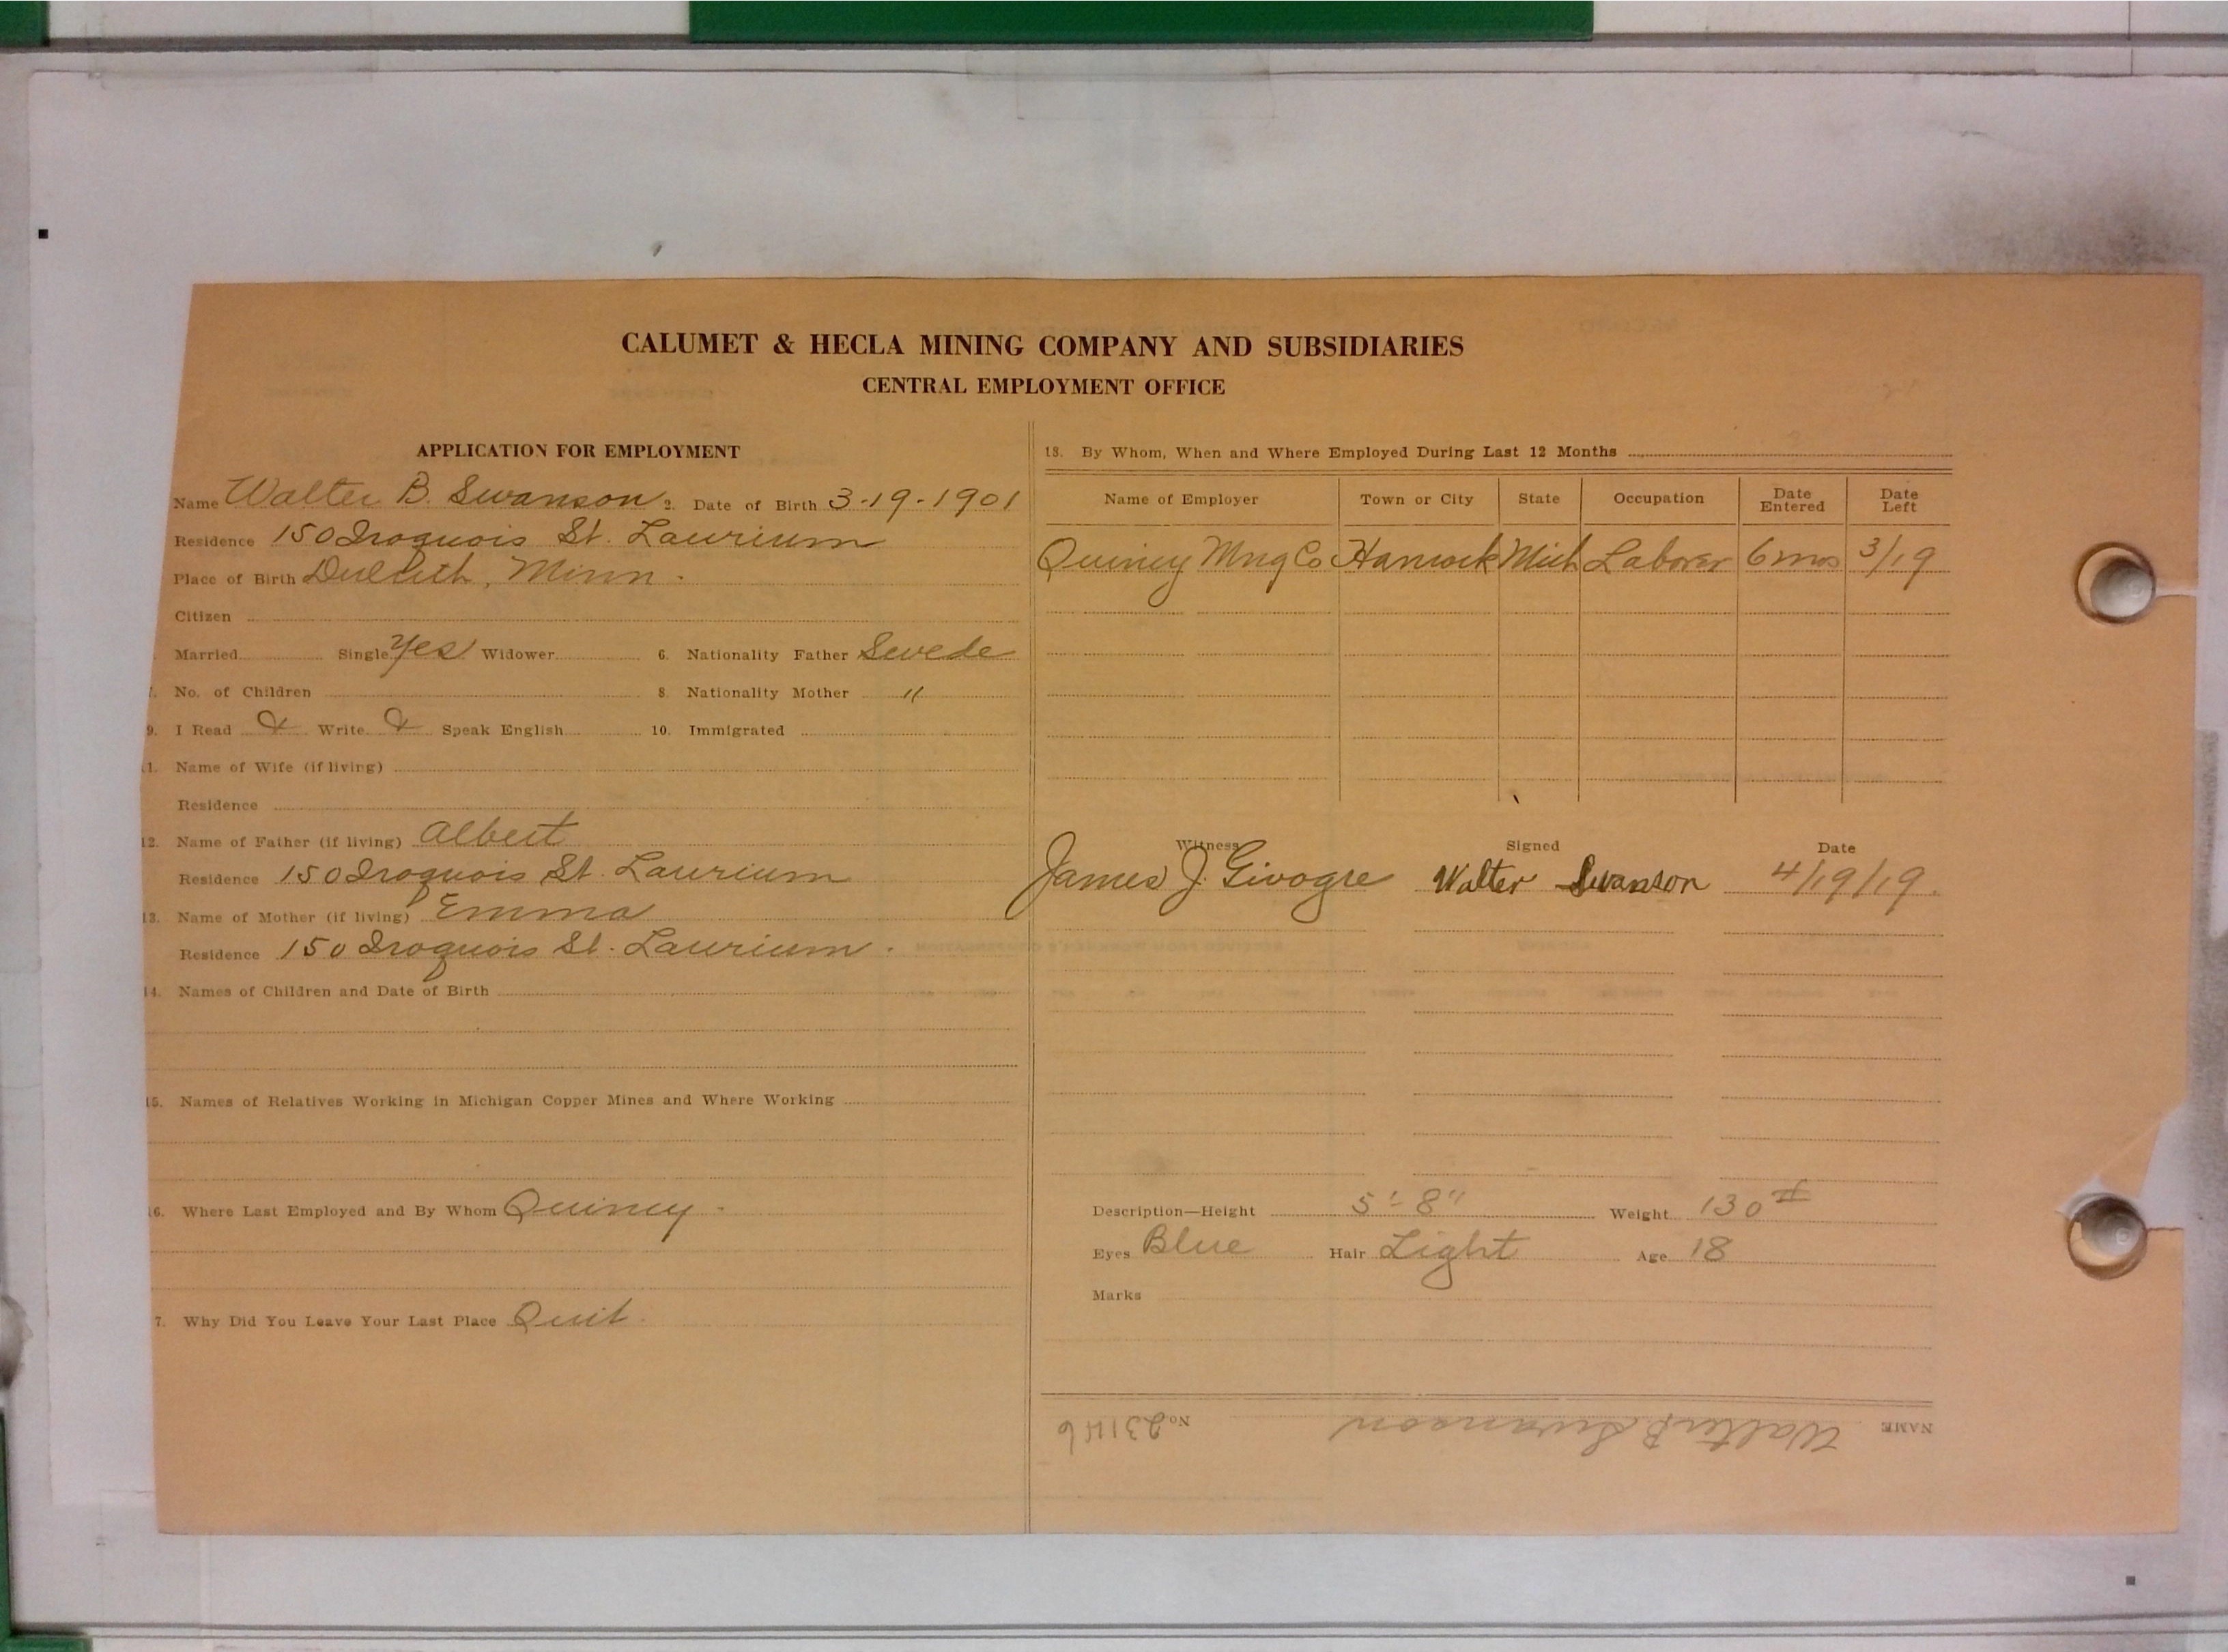 CALUMET & HECLA MINING COMPANY AND SUBSIDIARIES
CENTRAL EMPLOYMENT OFFICE
APPLICATION FOR EMPLOYMENT
Name Walter B. Swanson 2. Date of Birth 3-19-1901
Residence 150 Iroquois St. Laurium
Place of Birth Duluth, Minn.
Citizen
Married Single Yes Widower 6. Nationality Father Swede
No. of Children 8. Nationality Mother "
9. I Read & Write & Speak English 10. Immigrated
11. Name of Wife (if living)
Residence
12. Name of Father (if living) Albert
Residence 150 Iroquois St. Laurium
13. Name of Mother (if living) Emma
Residence 150 Iroquois St. Laurium.
14. Names of Children and Date of Birth
15. Names of Relatives Working in Michigan Copper Mines and Where Working
16. Where Last Employed and By Whom Quincy.
7. Why Did You Leave Your Last Place Quit
18. By Whom, When and Where Employed During Last 12 Months
Name of Employer Town or City State Occupation Date Entered Date Left
Quincy Mng Co Hancock Mich Laborer 6 mos 3/19
Witness Signed Date
James J. Walter Swanson 4/19/19.
Description—Height 5'-8" Weight 130 #
Eyes Blue Hair Light Age 18
Marks
NAME Walter B Swanson No 23146